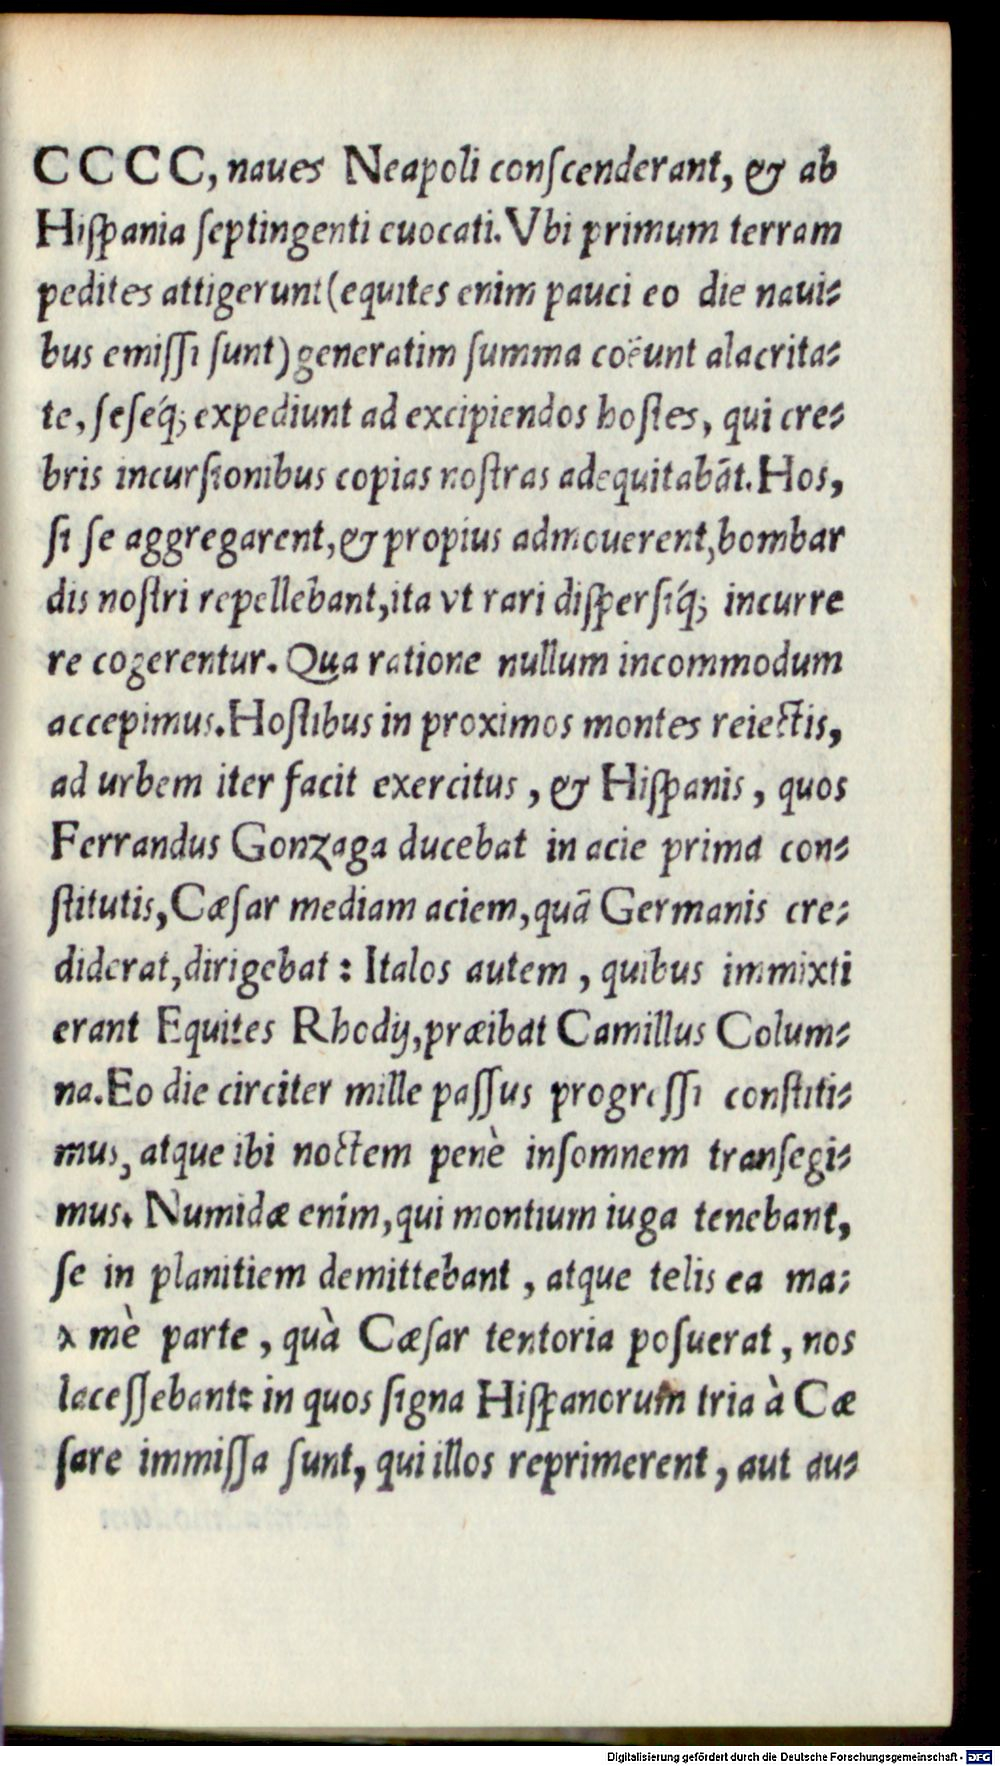 CCCC, naues Neapoli conſcenderant, & ab
Hiſpania ſeptingenti euocati. Vbi primum terram
pedites attigerunt (equites enim pauci eo die naui-
bus emiſſi ſunt) generatim ſumma coëunt alacrita-
te, ſeſeq́; expediunt ad excipiendos hoſtes, qui cre-
bris incurſionibus copias noſtras adequitabāt. Hos,
ſi ſe aggregarent, & propius admouerent, bombar
dis noſtri repellebant, ita vt rari diſperſiq́; incurre
re cogerentur. Qua ratione nullum incommodum
accepimus. Hoſtibus in proximos montes reiectis,
ad urbem iter facit exercitus, & Hiſpanis, quos
Ferrandus Gonzaga ducebat in acie prima con-
ſtitutis, Cæſar mediam aciem, quā Germanis cre-
diderat, dirigebat: Italos autem, quibus immixti
erant Equites Rhodij, præibat Camillus Colum-
na. Eo die circiter mille paſſus progreſſi conſtiti-
mus, atque ibi noctem penè inſomnem tranſegi-
mus. Numidæ enim, qui montium iuga tenebant,
ſe in planitiem demittebant, atque telis ea ma-
x mè parte, quà Cæſar tentoria poſuerat, nos
laceſſebant: in quos ſigna Hiſpanorum tria à Cæ
ſare immiſſa ſunt, qui illos reprimerent, aut au-
Digitalisierung gefördert durch die Deutsche Forschungsgemeinschaft - DFG